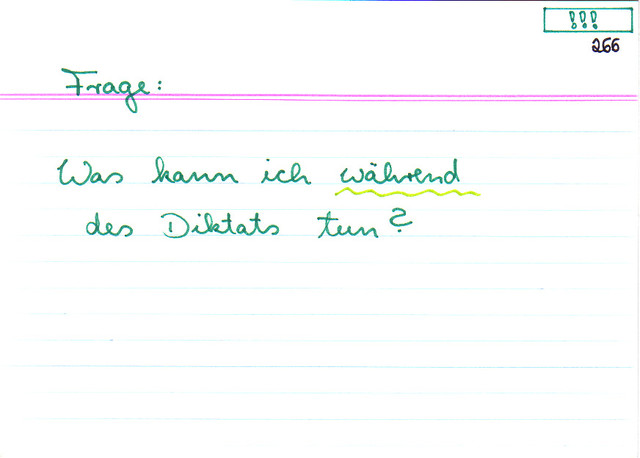 !!!
266
Frage:
Was kann ich während
des Diktats tun?